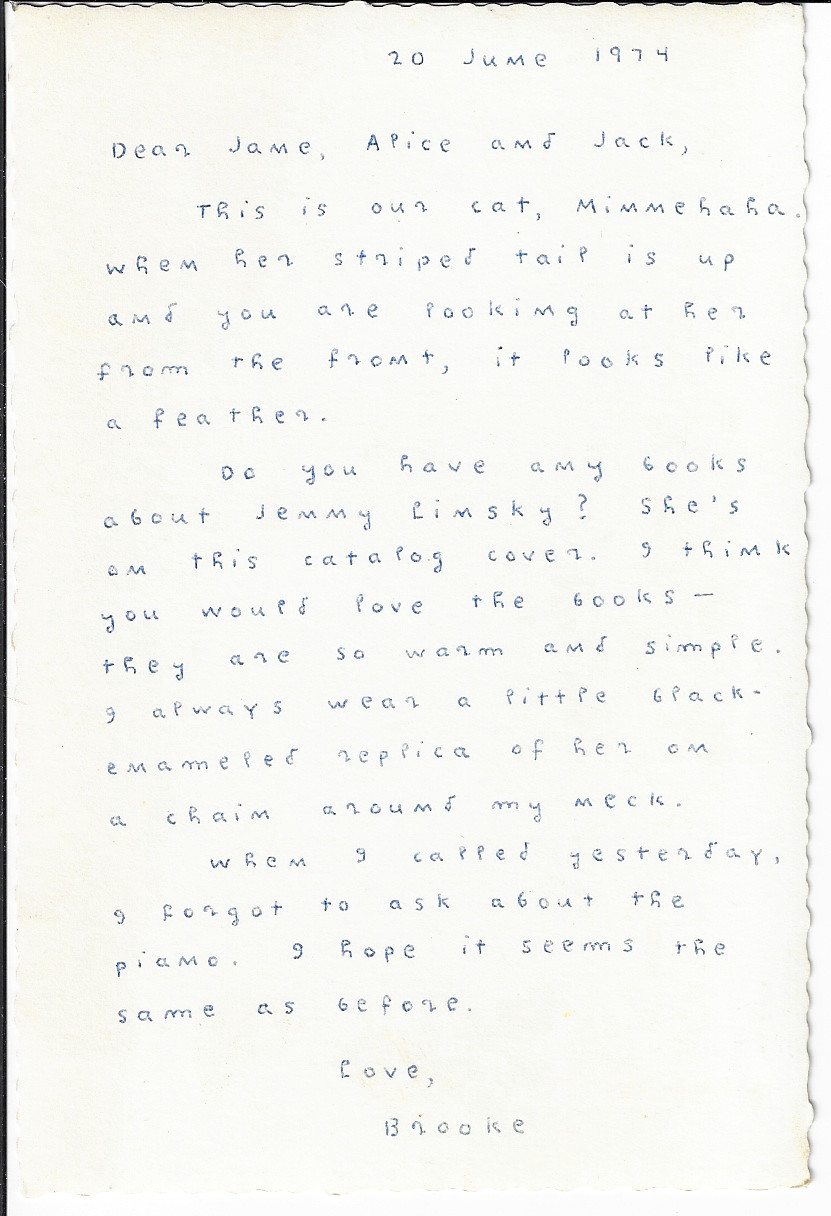 20 June 1974
Dear Jane, Alice and Jack,
This is our cat, Minnehaha.
When her striped tail is up
and you are looking at her
from the front, it looks like
a feather.
Do you have any books
about Jenny Linsky? She's
on this catalog cover. I think
you would love the books —
they are so warm and simple.
I always wear a little black-
enameled replica of her on
a chain around my neck.
When I called yesterday,
I forgot to ask about the
piano. I hope it seems the
same as before.
Love,
Brooke